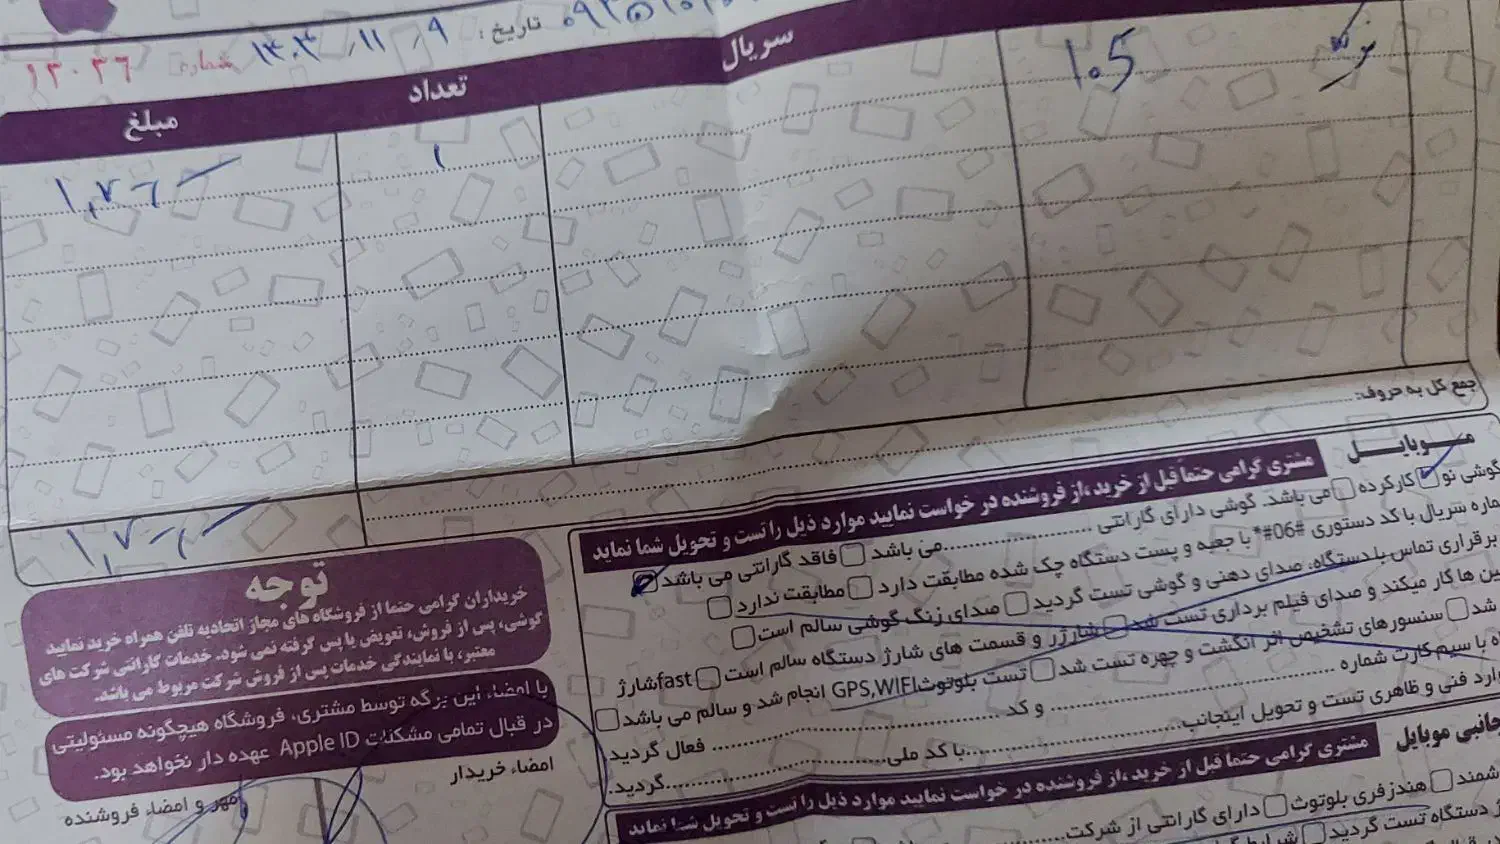 تاریخ: ۹ / ۱۱ / ۱۴۰۳
شماره ۱۳۰۳۶
سریال
تعداد
مبلغ
105
۱
جمع کل به حروف:
موبایل
مشتری گرامی حتماً قبل از خرید، از فروشنده در خواست نمایید موارد ذیل را تست و تحویل شما نماید
گوشی نو کارکرده می باشد. گوشی دارای گارانتی ................ می باشد فاقد گارانتی می باشد
ماره سریال با کد دستوری #06#* با جعبه و پست دستگاه چک شده مطابقت دارد مطابقت ندارد
برقراری تماس با دستگاه، صدای دهنی و گوشی تست گردید صدای زنگ گوشی سالم است
ین ها کار میکند و صدای فیلم برداری تست شد شارژر و قسمت های شارژ دستگاه سالم است fast شارژ
شد سنسورهای تشخیص اثر انگشت و چهره تست شد تست بلوتوث GPS,WIFI انجام شد و سالم می باشد
ه با سیم کارت شماره ................ و کد ................ فعال گردید
وارد فنی و ظاهری تست و تحویل اینجانب ................ با کد ملی ................ گردید.
توجه
خریداران گرامی حتما از فروشگاه های مجاز اتحادیه تلفن همراه خرید نمایید
گوشی، پس از فروش، تعویض یا پس گرفته نمی شود. خدمات گارانتی شرکت های
معتبر، با نمایندگی خدمات پس از فروش شرکت مربوط می باشد.
با امضاء این برگه توسط مشتری، فروشگاه هیچگونه مسئولیتی
در قبال تمامی مشکلات Apple ID عهده دار نخواهد بود.
امضاء خریدار
مهر و امضاء فروشنده
جانبی موبایل
مشتری گرامی حتما قبل از خرید، از فروشنده در خواست نمایید موارد ذیل را تست و تحویل شما نماید
شمند هندزفری بلوتوث دارای گارانتی از شرکت................
دستگاه تست گردید